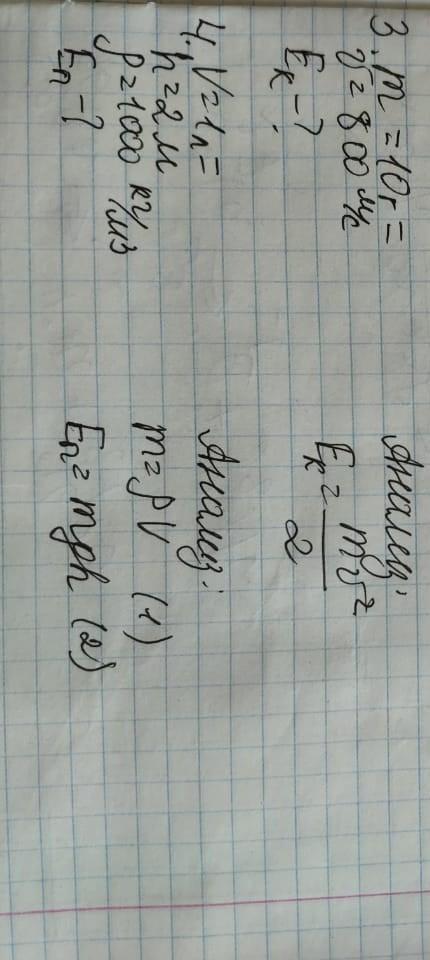 3. m = 10г =
v = 800 м/с
Eк - ?
Анализ:
Eк = mv²/2
4. V = 1л =
h = 2 м
ρ = 1000 кг/м3
Eп - ?
Анализ:
m = ρV (1)
Eп = mgh (2)